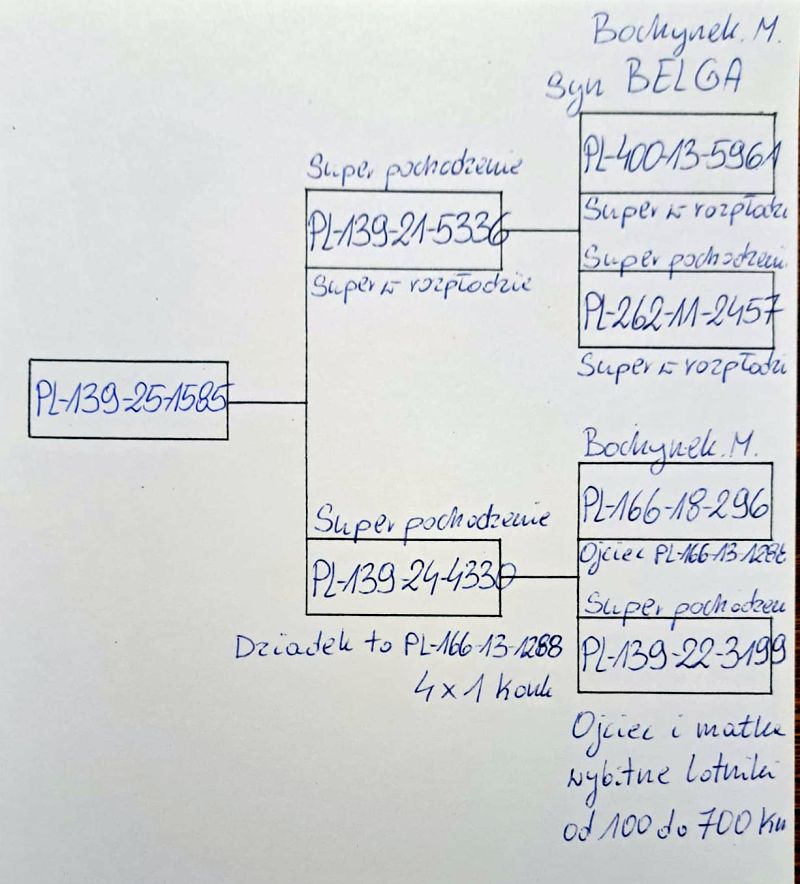 Bochynek. M.
Syn BELGA
PL-400-13-5961
Super w rozpłodzi
Super pochodzenie
PL-139-21-5336
Super w rozpłodzie
Super pochodzeni
PL-262-11-2457
Super w rozpłodzi
PL-139-25-1585
Bochynek. M.
PL-166-18-296
Ojciec PL-166-13-1288
Super pochodzenie
PL-139-24-4330
Super pochodzen
PL-139-22-3199
Dziadek to PL-166-13-1288
4 x 1 Konk
Ojciec i matka
wybitne lotniki
od 100 do 700 Km